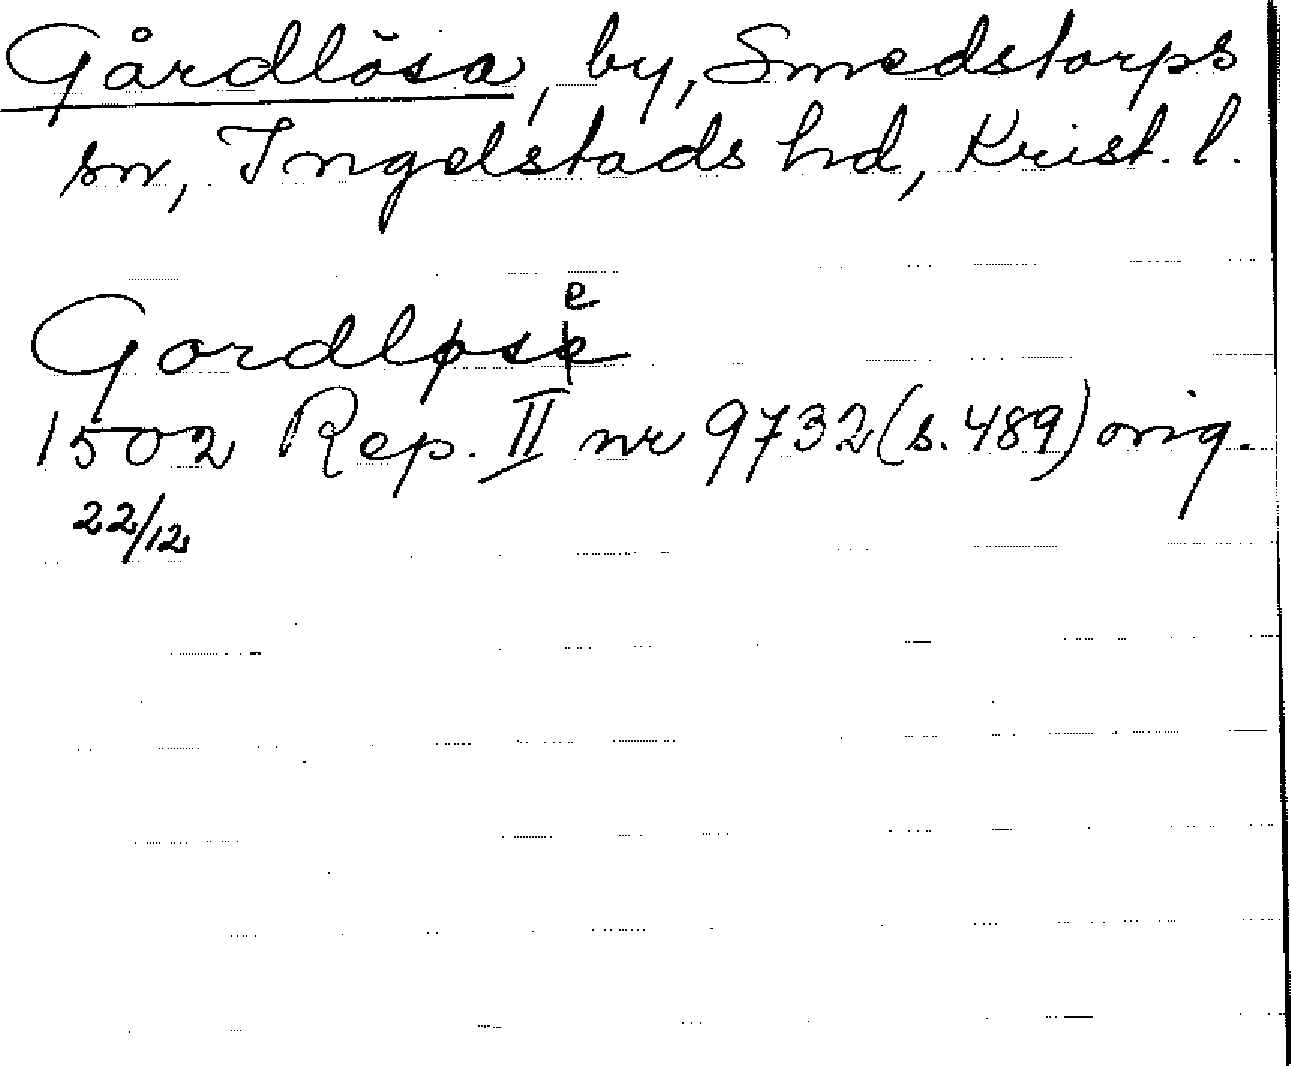 Gårdlösa, by, Smedstorps
sn, Ingelstads hd, Krist. l.
Gordløse
1502 Rep. II nr 9732 (s. 489) orig.
22/12